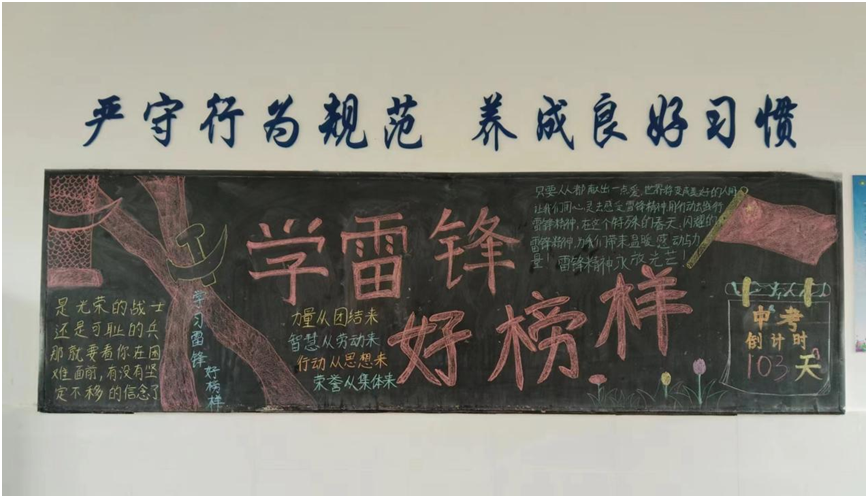 严守行为规范 养成良好习惯
学雷锋
好榜样
是光荣的战士
还是可耻的兵
那就要看你在困
难面前,有没有坚
定不移的信念了
学习雷锋
好榜样
力量从团结来
智慧从劳动来
行动从思想来
荣誉从集体来
只要人人都献出一点爱,世界将变成美好的人间
让我们用心灵去感受雷锋精神用行动去
雷锋精神,在这个特殊的春天,闪耀的
雷锋精神,为我们带来温暖、感动与力
量!雷锋精神永放光芒!
中考
倒计时
103天